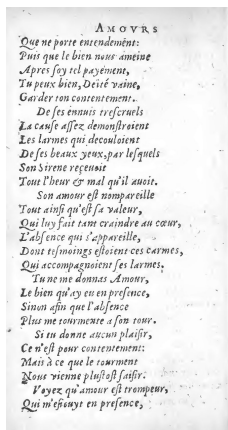 AMOVRS
Que ne porte entendemẽt:
Puis que le bien nous ameine
Apres ſoy tel payement,
Tu peux bien, Deité vaine,
Garder ton contentement.
De ſes ẽnuis treſcruels
La cauſe aſſez demonſtroient
Les larmes qui decouloient
De ſes beaux yeux, par leſquels
Son Sirene reçeuoit
Tout l'heur & mal qu'il auoit.
Son amour eſt nompareille
Tout ainſi qu'eſt ſa valeur,
Qui luy fait tant craindre au cœur,
L'abſence qui s'appareille,
Dont teſmoings eſtoient ces carmes,
Qui accompagnoient ſes larmes.
Tu ne me donnas Amour,
Le bien qu'ay eu en preſence,
Sinon afin que l'abſence
Plus me tourmente a ſon tour.
Si tu donne aucun plaiſir,
Ce n'eſt pour contentement:
Mais à ce que le tourment
Nous vienne pluſtoſt ſaiſir.
Voyez qu'amour eſt trompeur,
Qui m'eſiouyt en preſence,